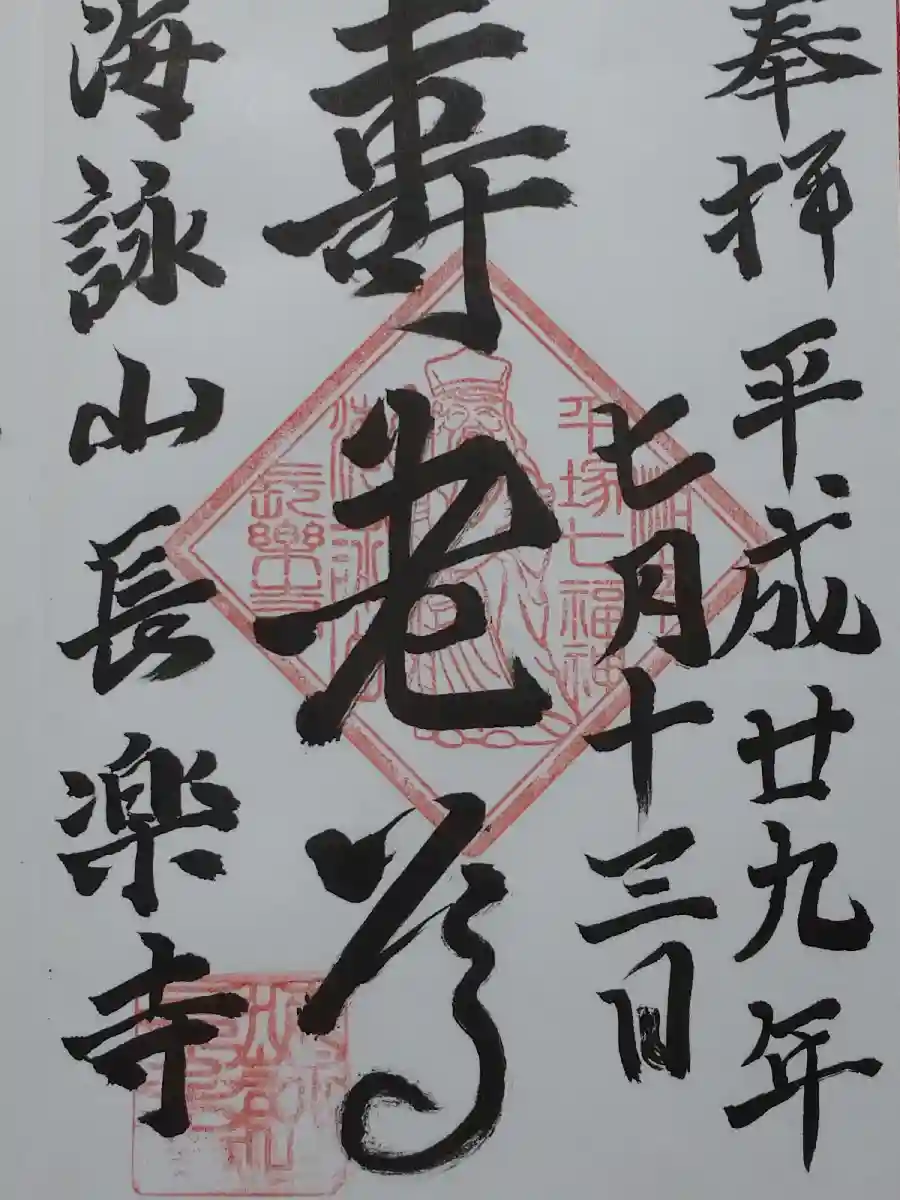 奉拝平成廿九年
七月十三日
寿老尊
海詠山長楽寺
平塚七福神
長樂寺